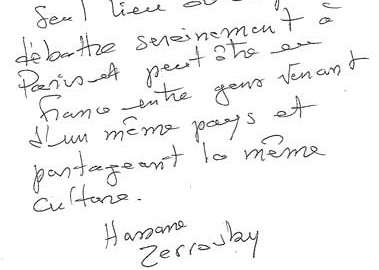 Seul lieu où
débattre sereinement à
Paris et peut être en
France entre gens venant
d'un même pays et
partageant la même
culture.
Hassane
Zerrouky